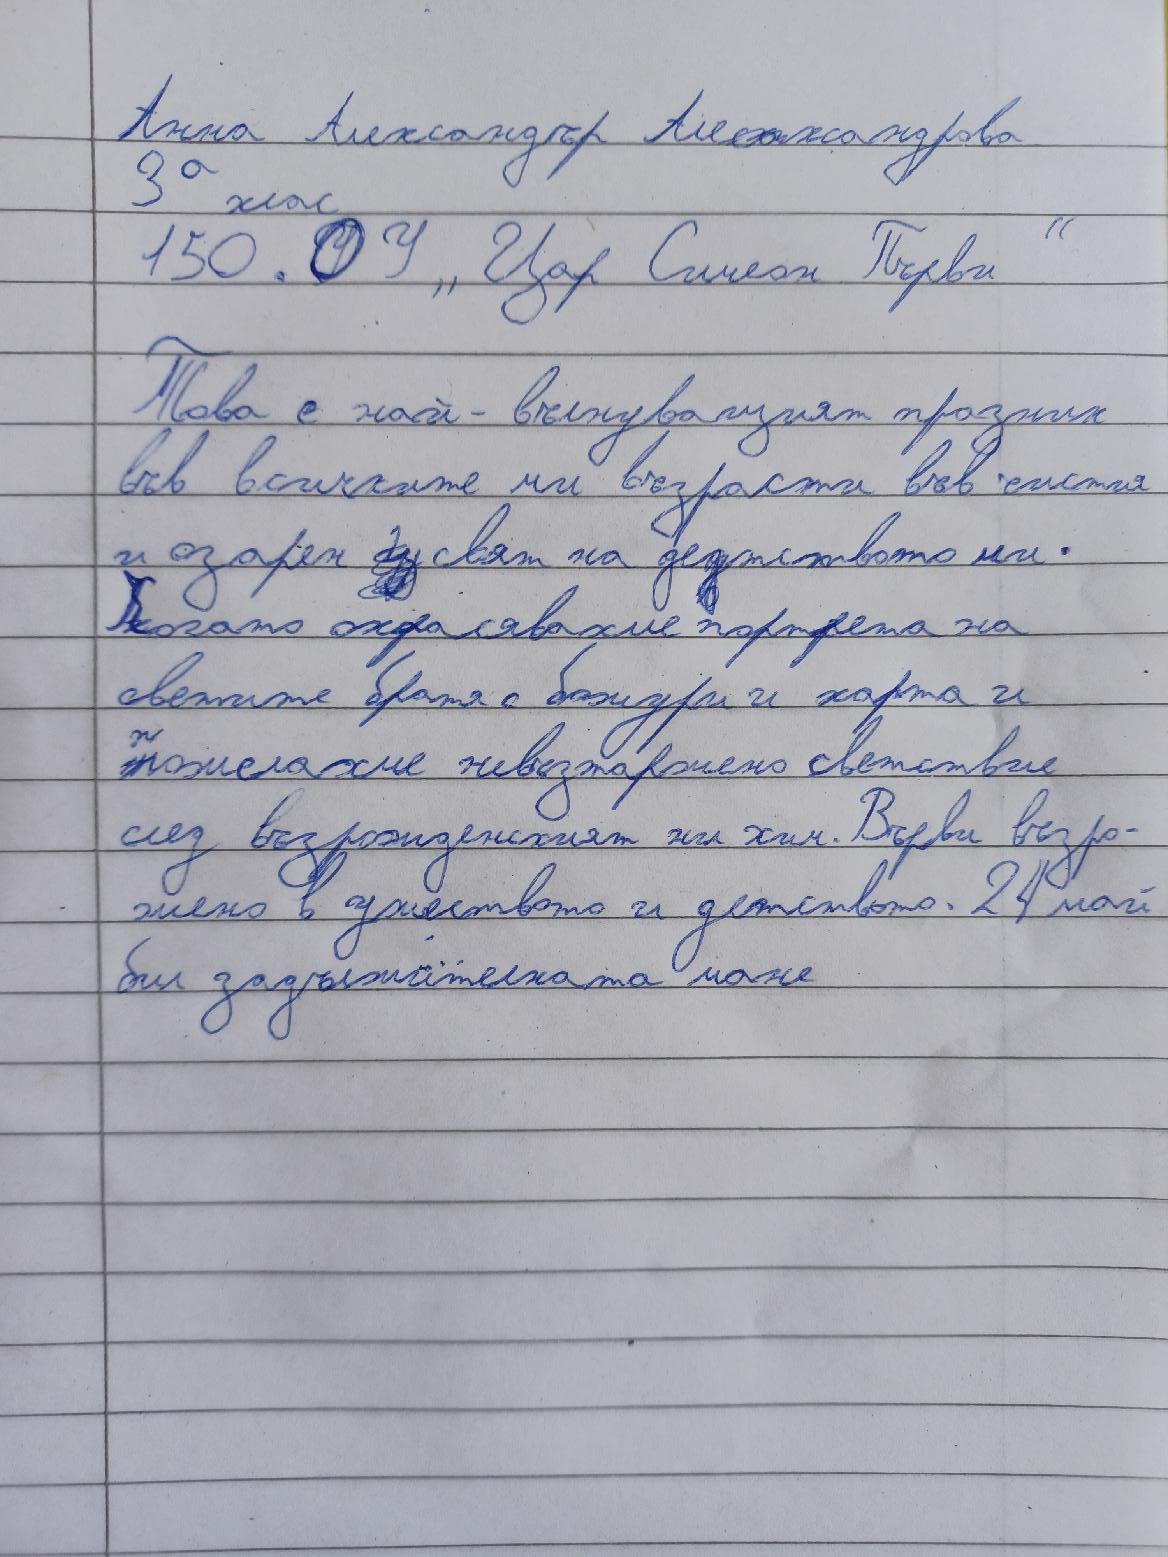 Анна Александър Александрова
3а клас
150. ОУ „Цар Симеон Първи“
Това е най-вълнуващият празник
във всичките ми възрасти във чистия
и озарен свят на детството ми.
когато окрасявахме портрета на
светите братя с божури и харта и
пожелахме невъзпаржено светствие
след възрожденският ни хим. Върви възро-
жено в ученството и детството. 24 май
бил задължителната